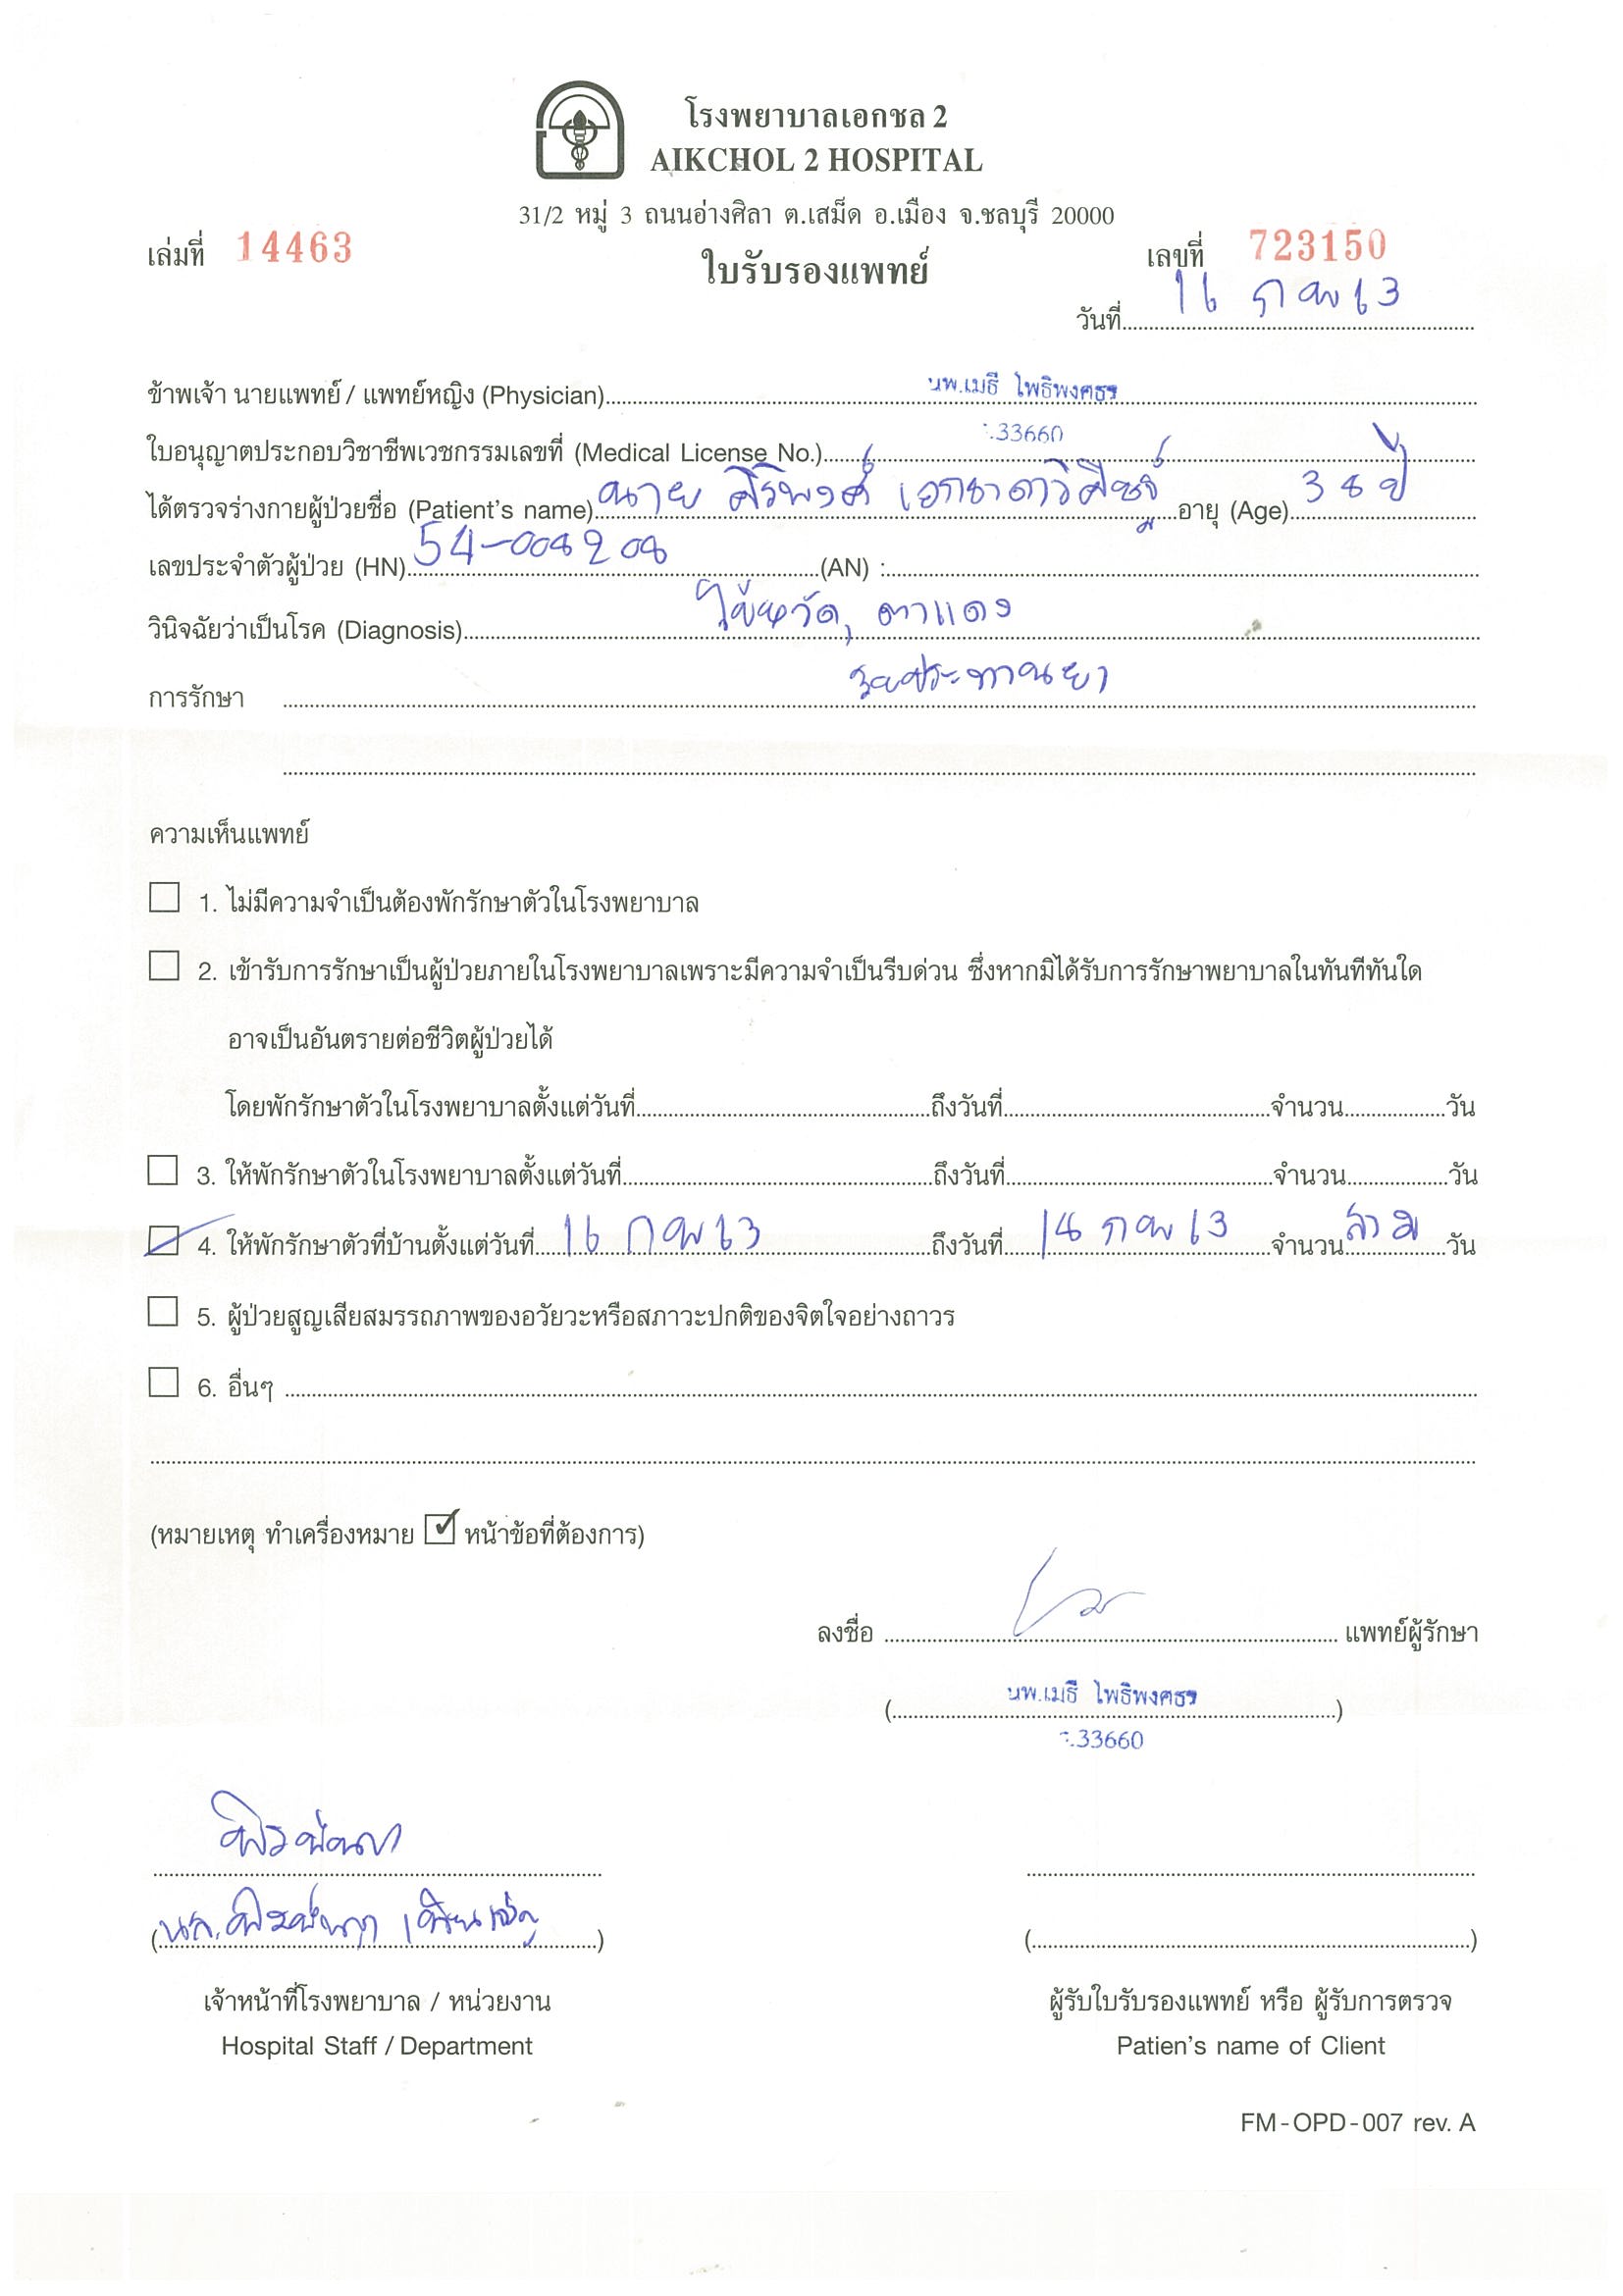 โรงพยาบาลเอกชล 2
AIKCHOL 2 HOSPITAL
31/2 หมู่ 3 ถนนอ่างศิลา ต.เสม็ด อ.เมือง จ.ชลบุรี 20000
เล่มที่ 14463
ใบรับรองแพทย์
เลขที่ 723150
วันที่ 16 กค 63
ข้าพเจ้า นายแพทย์ / แพทย์หญิง (Physician) นพ.เมธี โพธิพงศธร
ใบอนุญาตประกอบวิชาชีพเวชกรรมเลขที่ (Medical License No.) ว.33660
ได้ตรวจร่างกายผู้ป่วยชื่อ (Patient's name) นาย ศิริพงศ์ เอกธาดาวิศิษฎ์ อายุ (Age) 38 ปี
เลขประจำตัวผู้ป่วย (HN) 54-008208 (AN) :
วินิจฉัยว่าเป็นโรค (Diagnosis) ไข้หวัด, ตาแดง
การรักษา รับประทานยา
ความเห็นแพทย์
1. ไม่มีความจำเป็นต้องพักรักษาตัวในโรงพยาบาล
2. เข้ารับการรักษาเป็นผู้ป่วยภายในโรงพยาบาลเพราะมีความจำเป็นรีบด่วน ซึ่งหากมิได้รับการรักษาพยาบาลในทันทีทันใด
อาจเป็นอันตรายต่อชีวิตผู้ป่วยได้
โดยพักรักษาตัวในโรงพยาบาลตั้งแต่วันที่ ถึงวันที่ จำนวน วัน
3. ให้พักรักษาตัวในโรงพยาบาลตั้งแต่วันที่ ถึงวันที่ จำนวน วัน
4. ให้พักรักษาตัวที่บ้านตั้งแต่วันที่ 16 กพ 63 ถึงวันที่ 18 กพ 63 จำนวน สาม วัน
5. ผู้ป่วยสูญเสียสมรรถภาพของอวัยวะหรือสภาวะปกติของจิตใจอย่างถาวร
6. อื่นๆ
(หมายเหตุ ทำเครื่องหมาย ☑ หน้าข้อที่ต้องการ)
ลงชื่อ แพทย์ผู้รักษา
(นพ.เมธี โพธิพงศธร)
ว.33660
เจ้าหน้าที่โรงพยาบาล / หน่วยงาน
Hospital Staff / Department
ผู้รับใบรับรองแพทย์ หรือ ผู้รับการตรวจ
Patien's name of Client
FM-OPD-007 rev. A